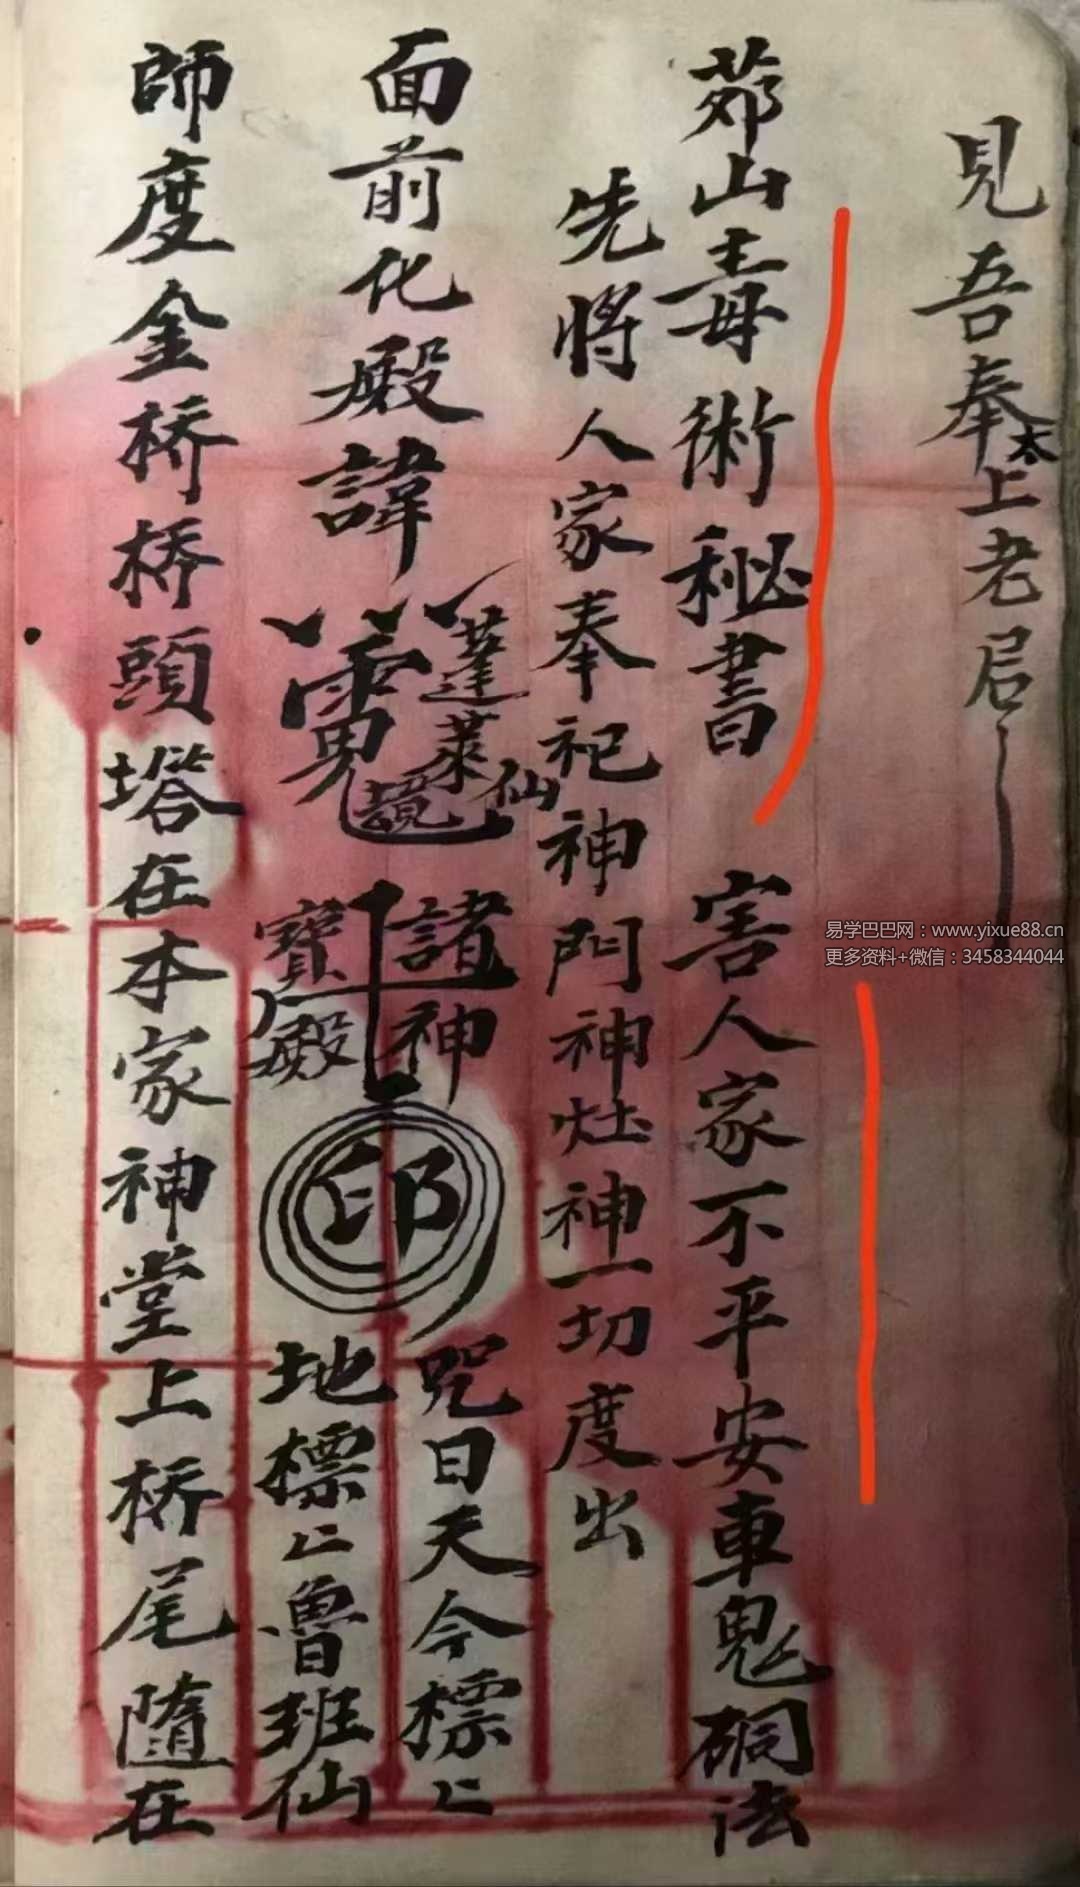 見吾奉太上老君
茆山毒術秘書 害人家不平安車鬼硐法
先將人家奉祀神門神灶神一切度出
面前化殿諱
蓬萊仙境
諸神
寶殿
印
咒曰天今標〻
地標〻魯班仙
師度金桥桥頭塔在本家神堂上桥尾隨在
易学巴巴网：www.yixue88.cn
更多资料+微信：3458344044